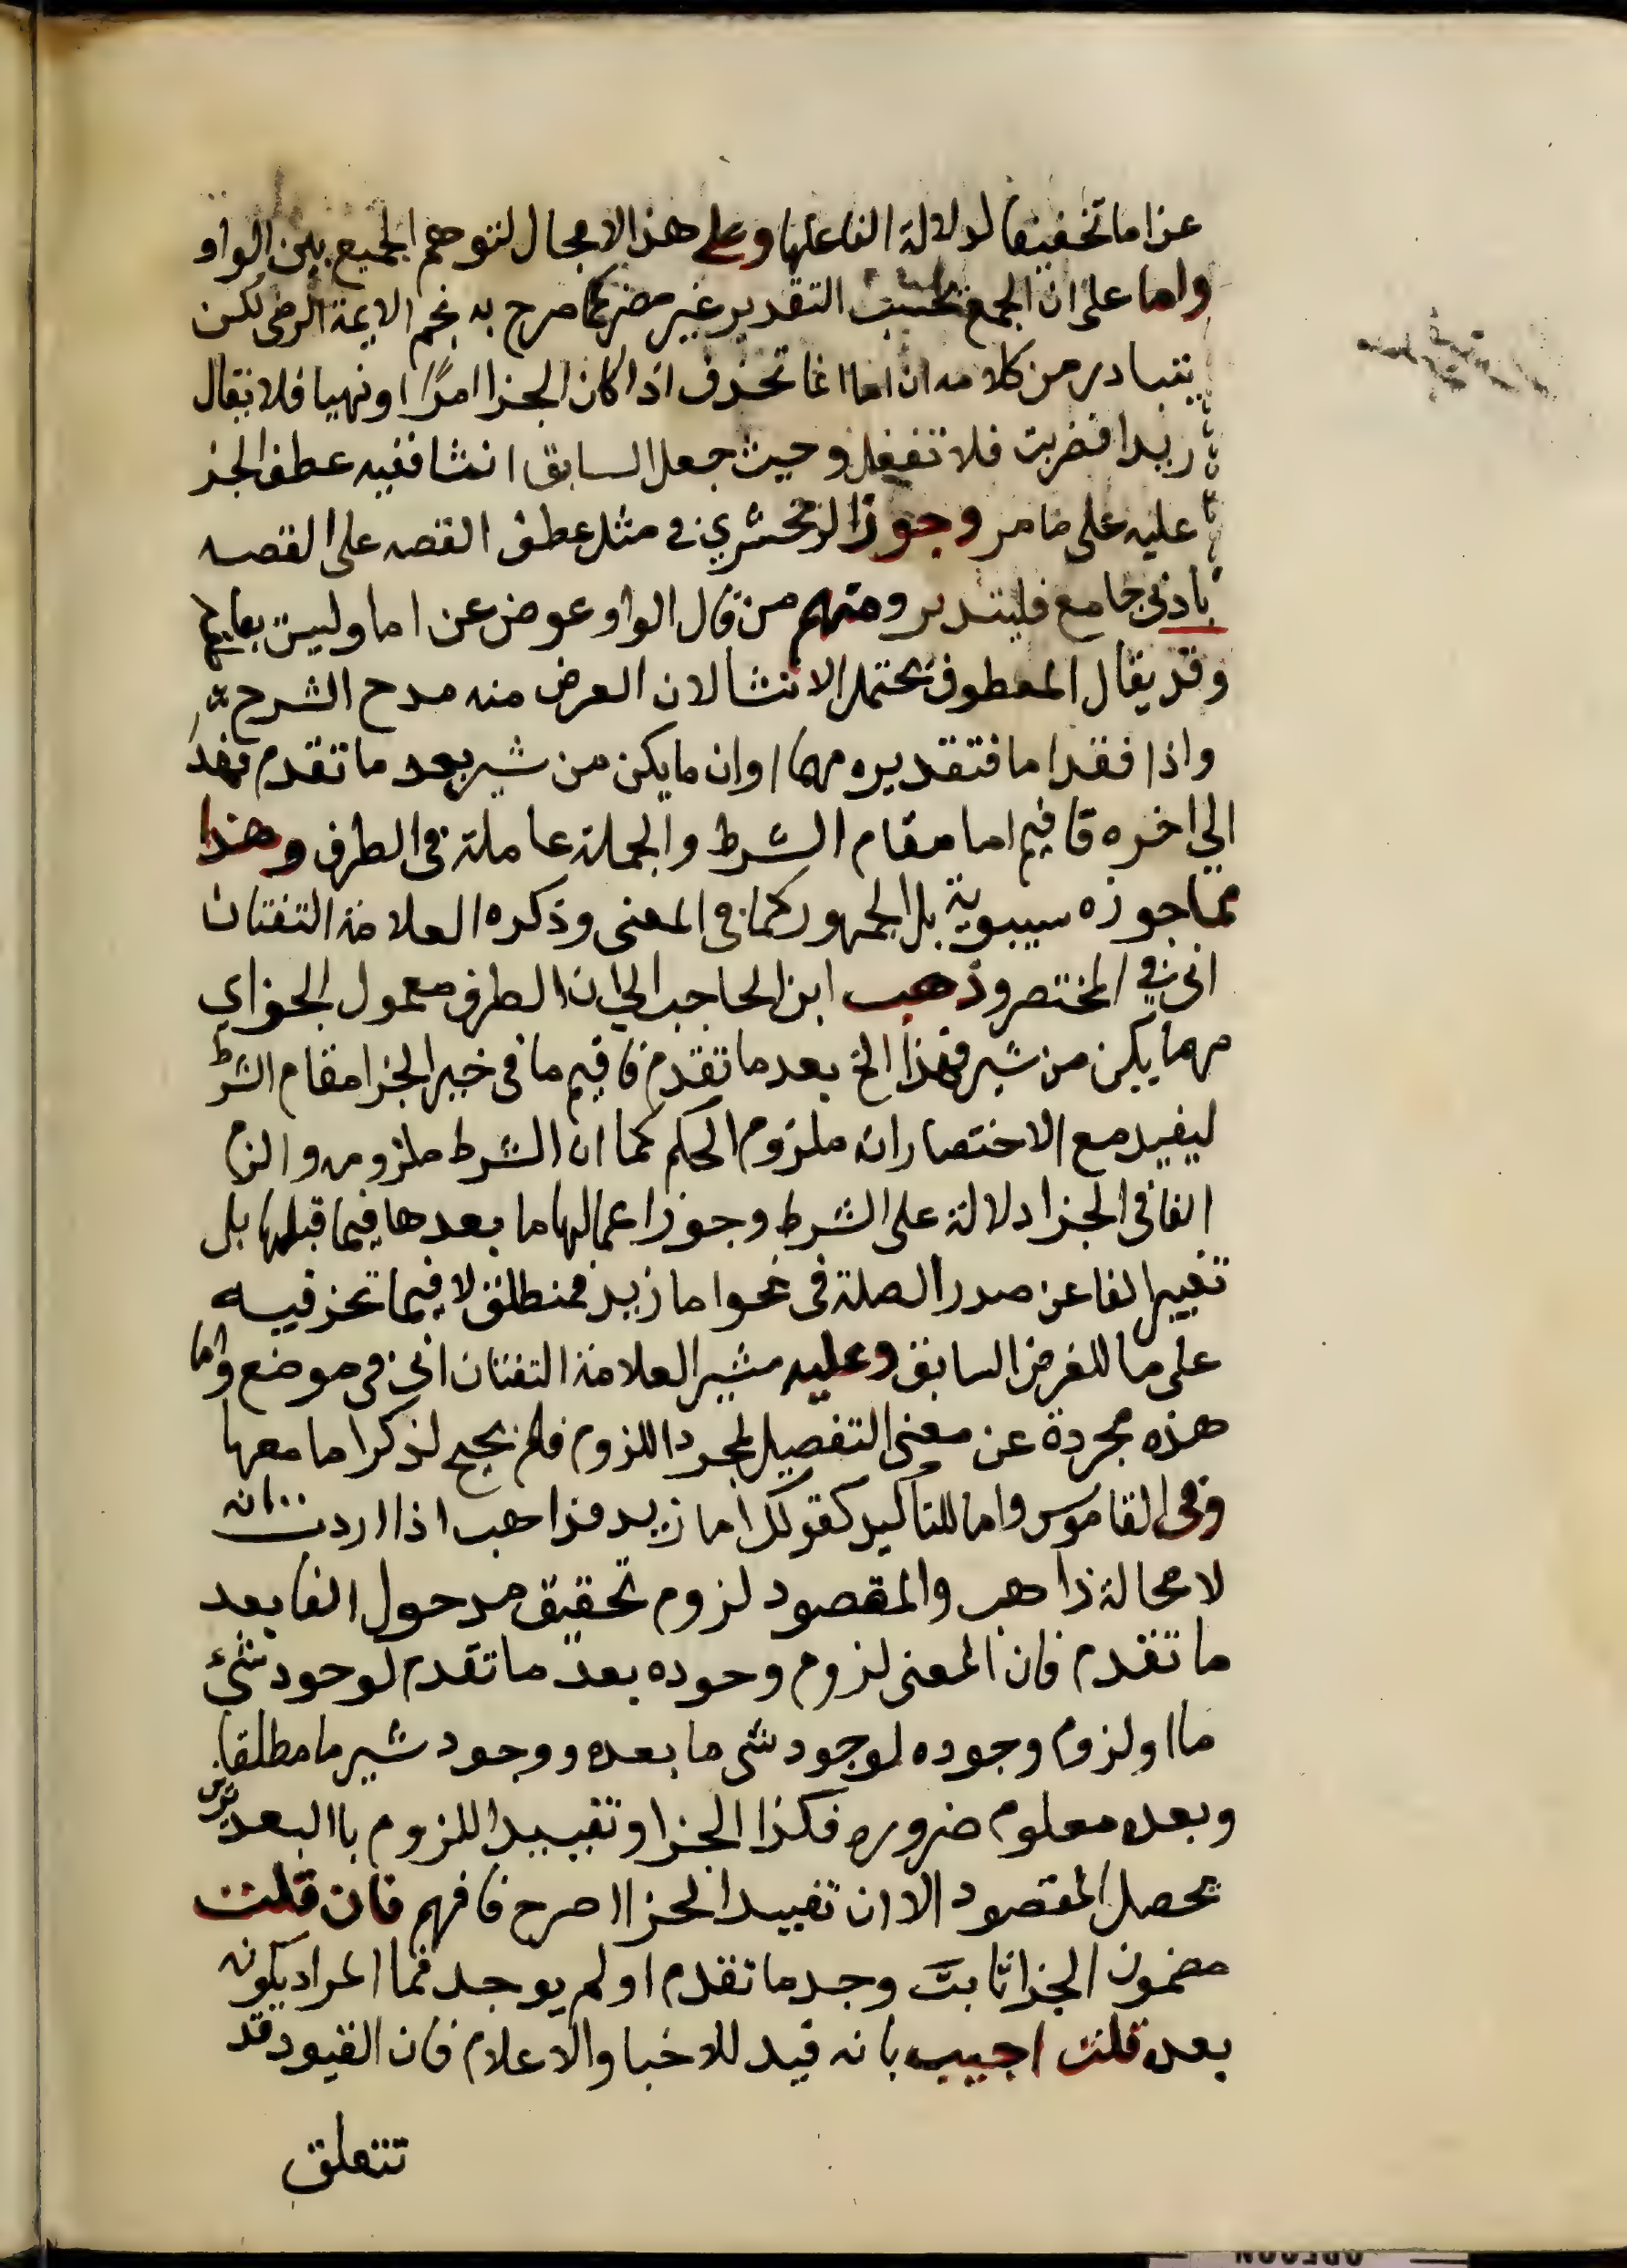 عن اما تخفيفا لدلالة الفا عليها وعلى هذا لا مجال لتوهم الجميع بين الواو
واما على ان الجمع بحسب التقدير غير مضر كما صرح به نجم الايمة الرضى لكن
يتبادر من كلامه ان اما انما تحذف اذا كان الجزا امرًا او نهيا فلا يقال
زيدا فضربت فلا تغفل وحيث جعل السابق انشا ففيه عطف الخبر
عليه على ما مر وجوز الزمخشري في مثل عطف القصه على القصه
بادنى جامع فليتدبر ومنهم من قال الواو عوض عن اما وليست بعاطفة
وقد يقال المعطوف يحتمل الانشا لان الغرض منه مدح الشرح
واذا فقد اما فتقديره مهما او ان ما يكن من شير بعد ما تقدم فهذ
الي اخره فاقيم اما مقام الشرط والجملة عاملة في الظرف وهذا
مما جوزه سيبوية بل الجمهور كما في المغنى وذكره العلامة التفتاز
اني في المختصر وذهب ابن الحاجب الي ان الظرف معمول الجز اي
مهما يكن من شير فهذا الخ بعد ما تقدم فاقيم ما في خير الجزا مقام الشرط
ليفيد مع الاختصار انه ملزوم الحكم كما ان الشرط ملزومه والزم
الفا في الجزا دلالة على الشرط وجوز اعمالها ما بعدها فيما قبلها بل
تغيير الفا عن صدر الصلة في نحو اما زيد فمنطلق لا فيما نحن فيه
على ما للغرض السابق وعليه مشير العلامة التفتازاني في موضع واما
هذه مجردة عن معنى التفصيل لمجرد اللزوم فلم يحتج لذكر اما معها
وفي القاموس واما للتاكيد كقولك اما زيد فذاهب اذا اردت انه
لا محالة ذاهب والمقصود لزوم تحقيق مدخول الفا بعد
ما تقدم فان المعنى لزوم وجوده بعد ما تقدم لوجود شئ
ما او لزوم وجوده لوجود شى ما بعده ووجود شير ما مطلقا
وبعده معلوم ضروره فكذا الجزا وتقييد اللزوم باالبعدية
يحصل المقصود الا ان تقييد الجزا اصرح فافهم فان قلت
مضمون الجزا ثابت وجد ما تقدم او لم يوجد فما المراد بكونه
بعده قلت اجيب بانه قيد للاخبا والاعلام فان القيود قد
تتعلق